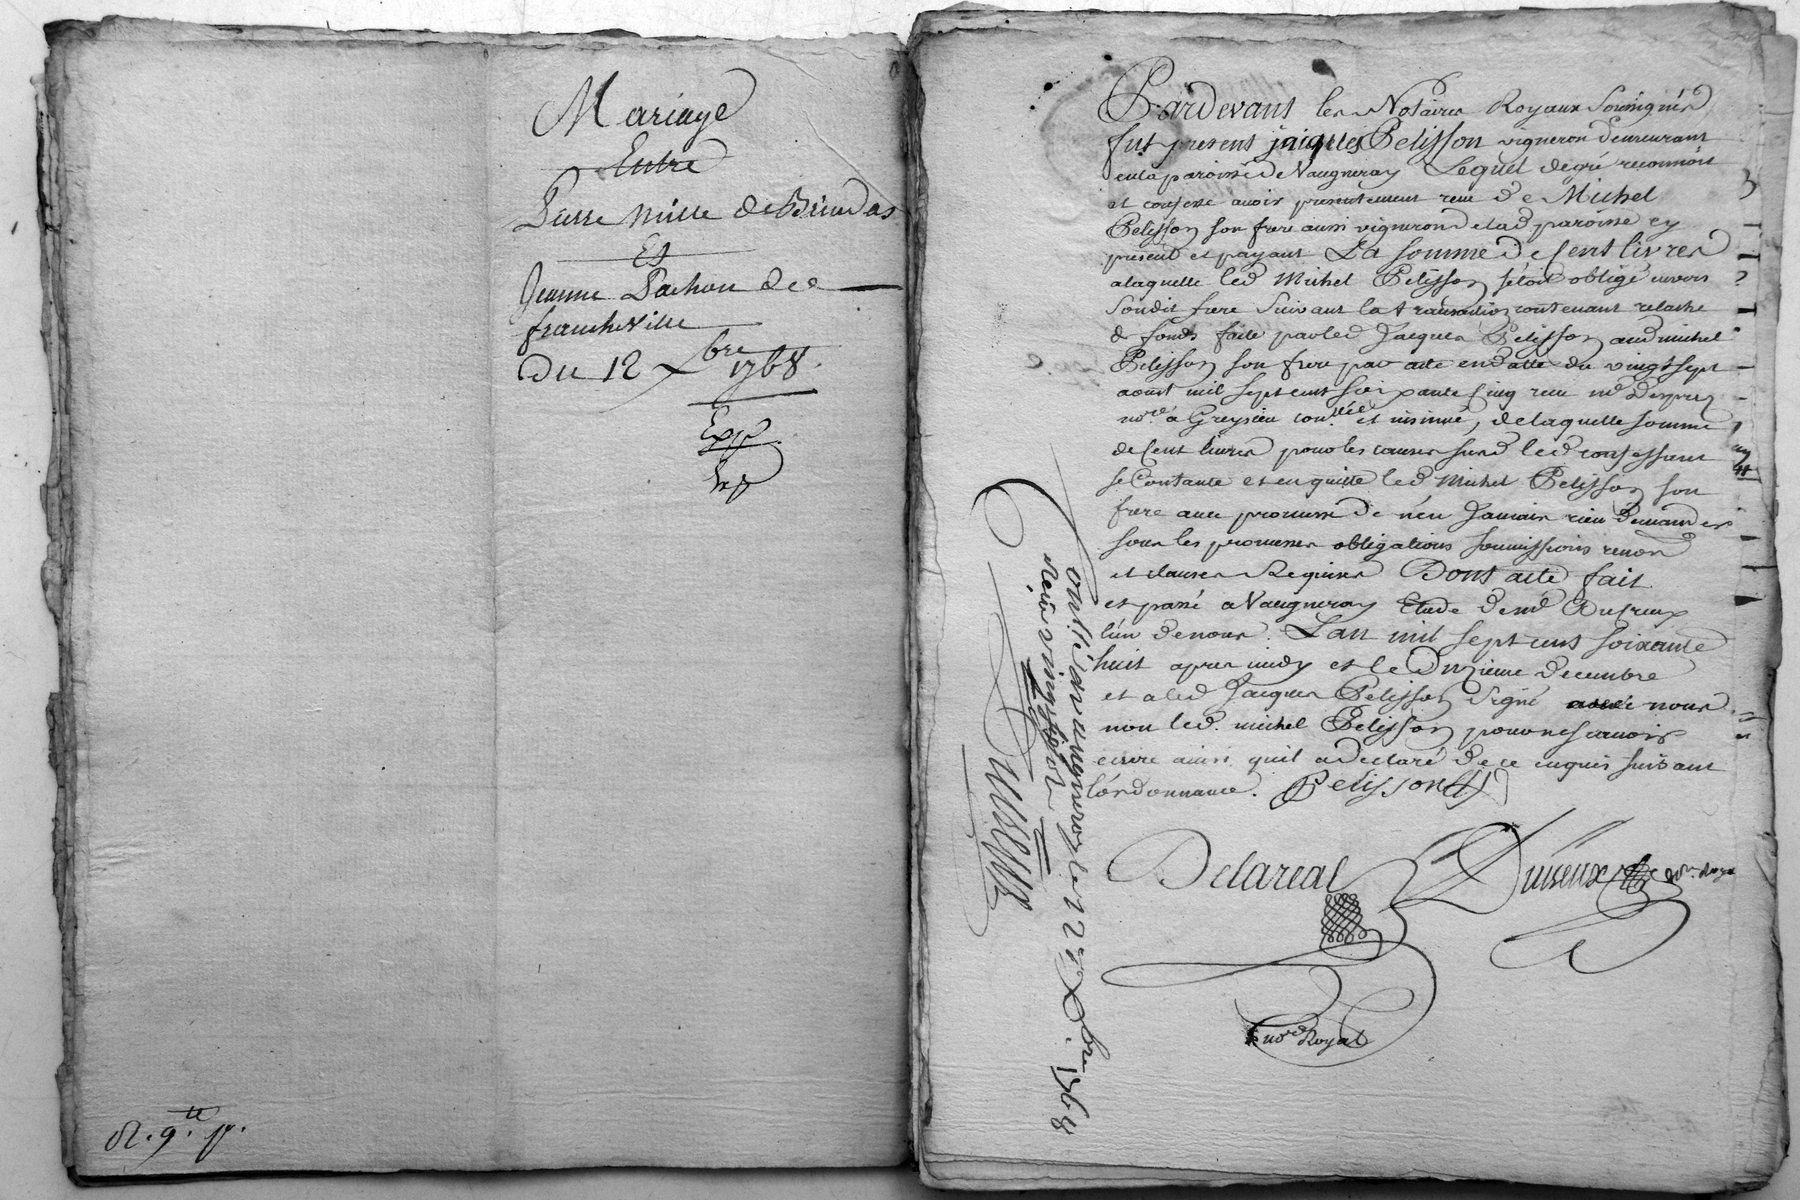 Mariage
Entre
Pierre Mille de Brindas
Et
Jeanne Pachon de
francheville
Du 12 Xbre 1768.
Exp.
R. 9.te
Pardevant les Notaires Royaux Soussignés
fut present jaiques Pelisson vigneron demeurant
en la paroisse de Vaugneray Lequel de gré reconnoit
et confesse avoir presentement receu de Michel
Pelisson son frere aussi vigneron de lad paroisse cy
present et payant La somme de Cent livres
a laquelle led Michel Pelisson s'etoit obligé envers
Sondit frere Suivant la transaction contenant relache
de fonds faite par led Jacques Pelisson aud michel
Pelisson son frere par acte en datte du vingt sept
aoust mil sept cent soixante Cinq receu me
nore a Greysieu conllé et insinué, de laquelle somme
de Cent livres pour les causes susd led confessant
se Contante et en quitte led Michel Pelisson son
frere avec promesse de n'en Jamais rien demander
sous les promesses obligations soumissions renon
et clauses Requises Dont acte fait
et passé a Vaugneray Etude de me
l'un de nous. L'an mil sept cens soixante
huit apres midy et le Onzieme decembre
et a led Jacques Pelisson signé nous
non led. michel Pelisson pour ne scavoir
ecrire ainsi quil a declaré de ce enquis suivant
l'ordonnance. Pelisson
Delareal
nore Royal
Conllé a vaugneray le 12 Xbre 1768
Receu